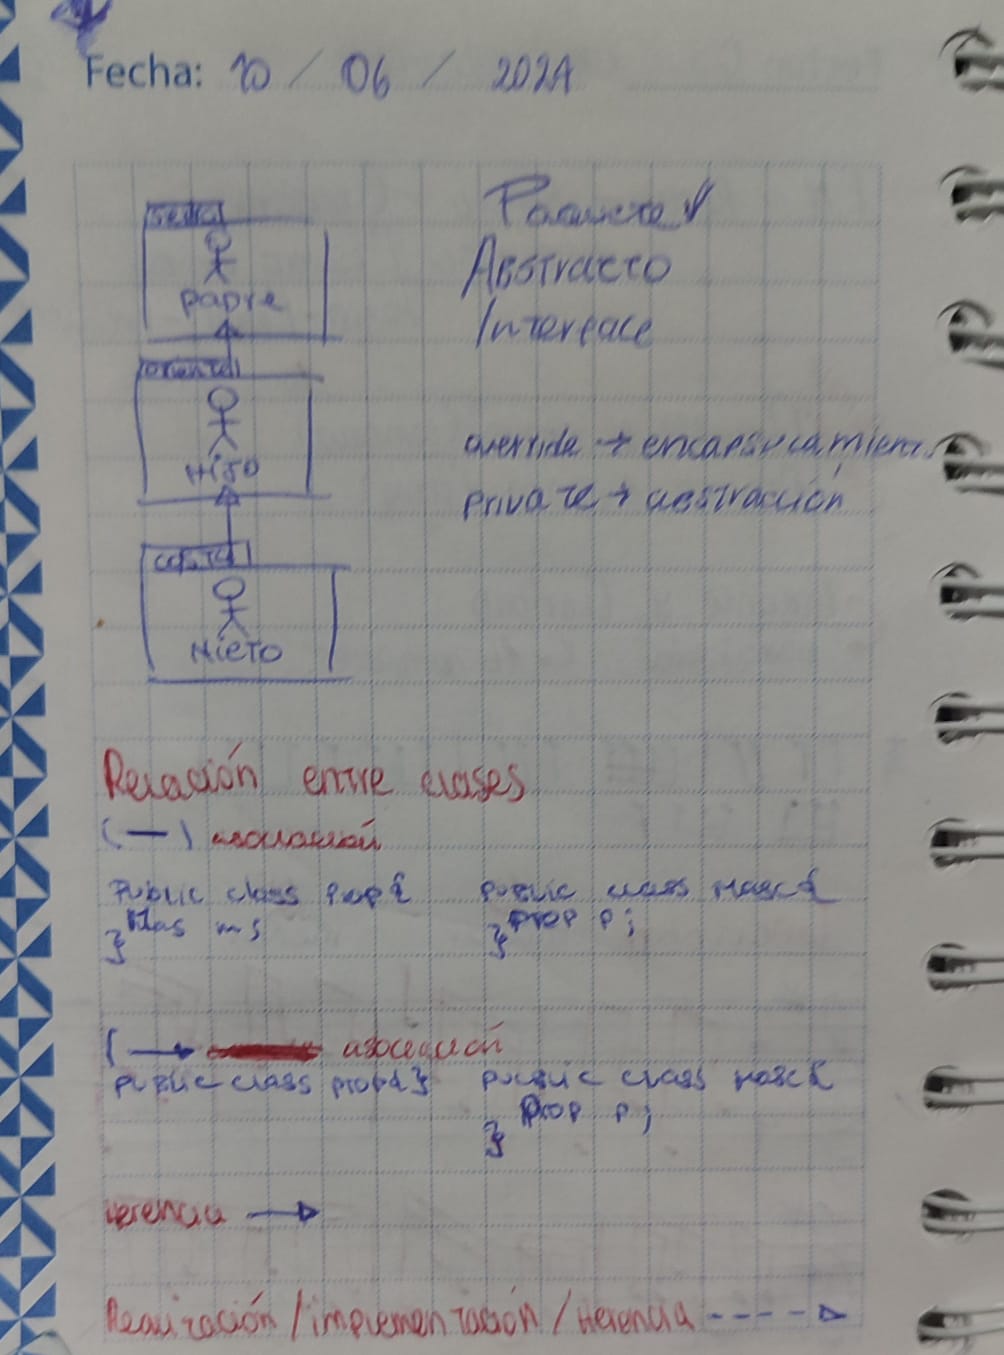 Fecha: 10 / 06 / 2024
Sierra
Padre
oriente
Hijo
costa
Nieto
Paquete
Abstracto
Interface
override → encapsulamiento
private → abstracción
Relación entre clases
(—) asociación
Public class Prop{
Mas m;
}
public class Masc{
Prop p;
}
(→ asociación
public class prop{}
public class Masc{
Prop p;
}
Herencia
Realización/implementación/Herencia